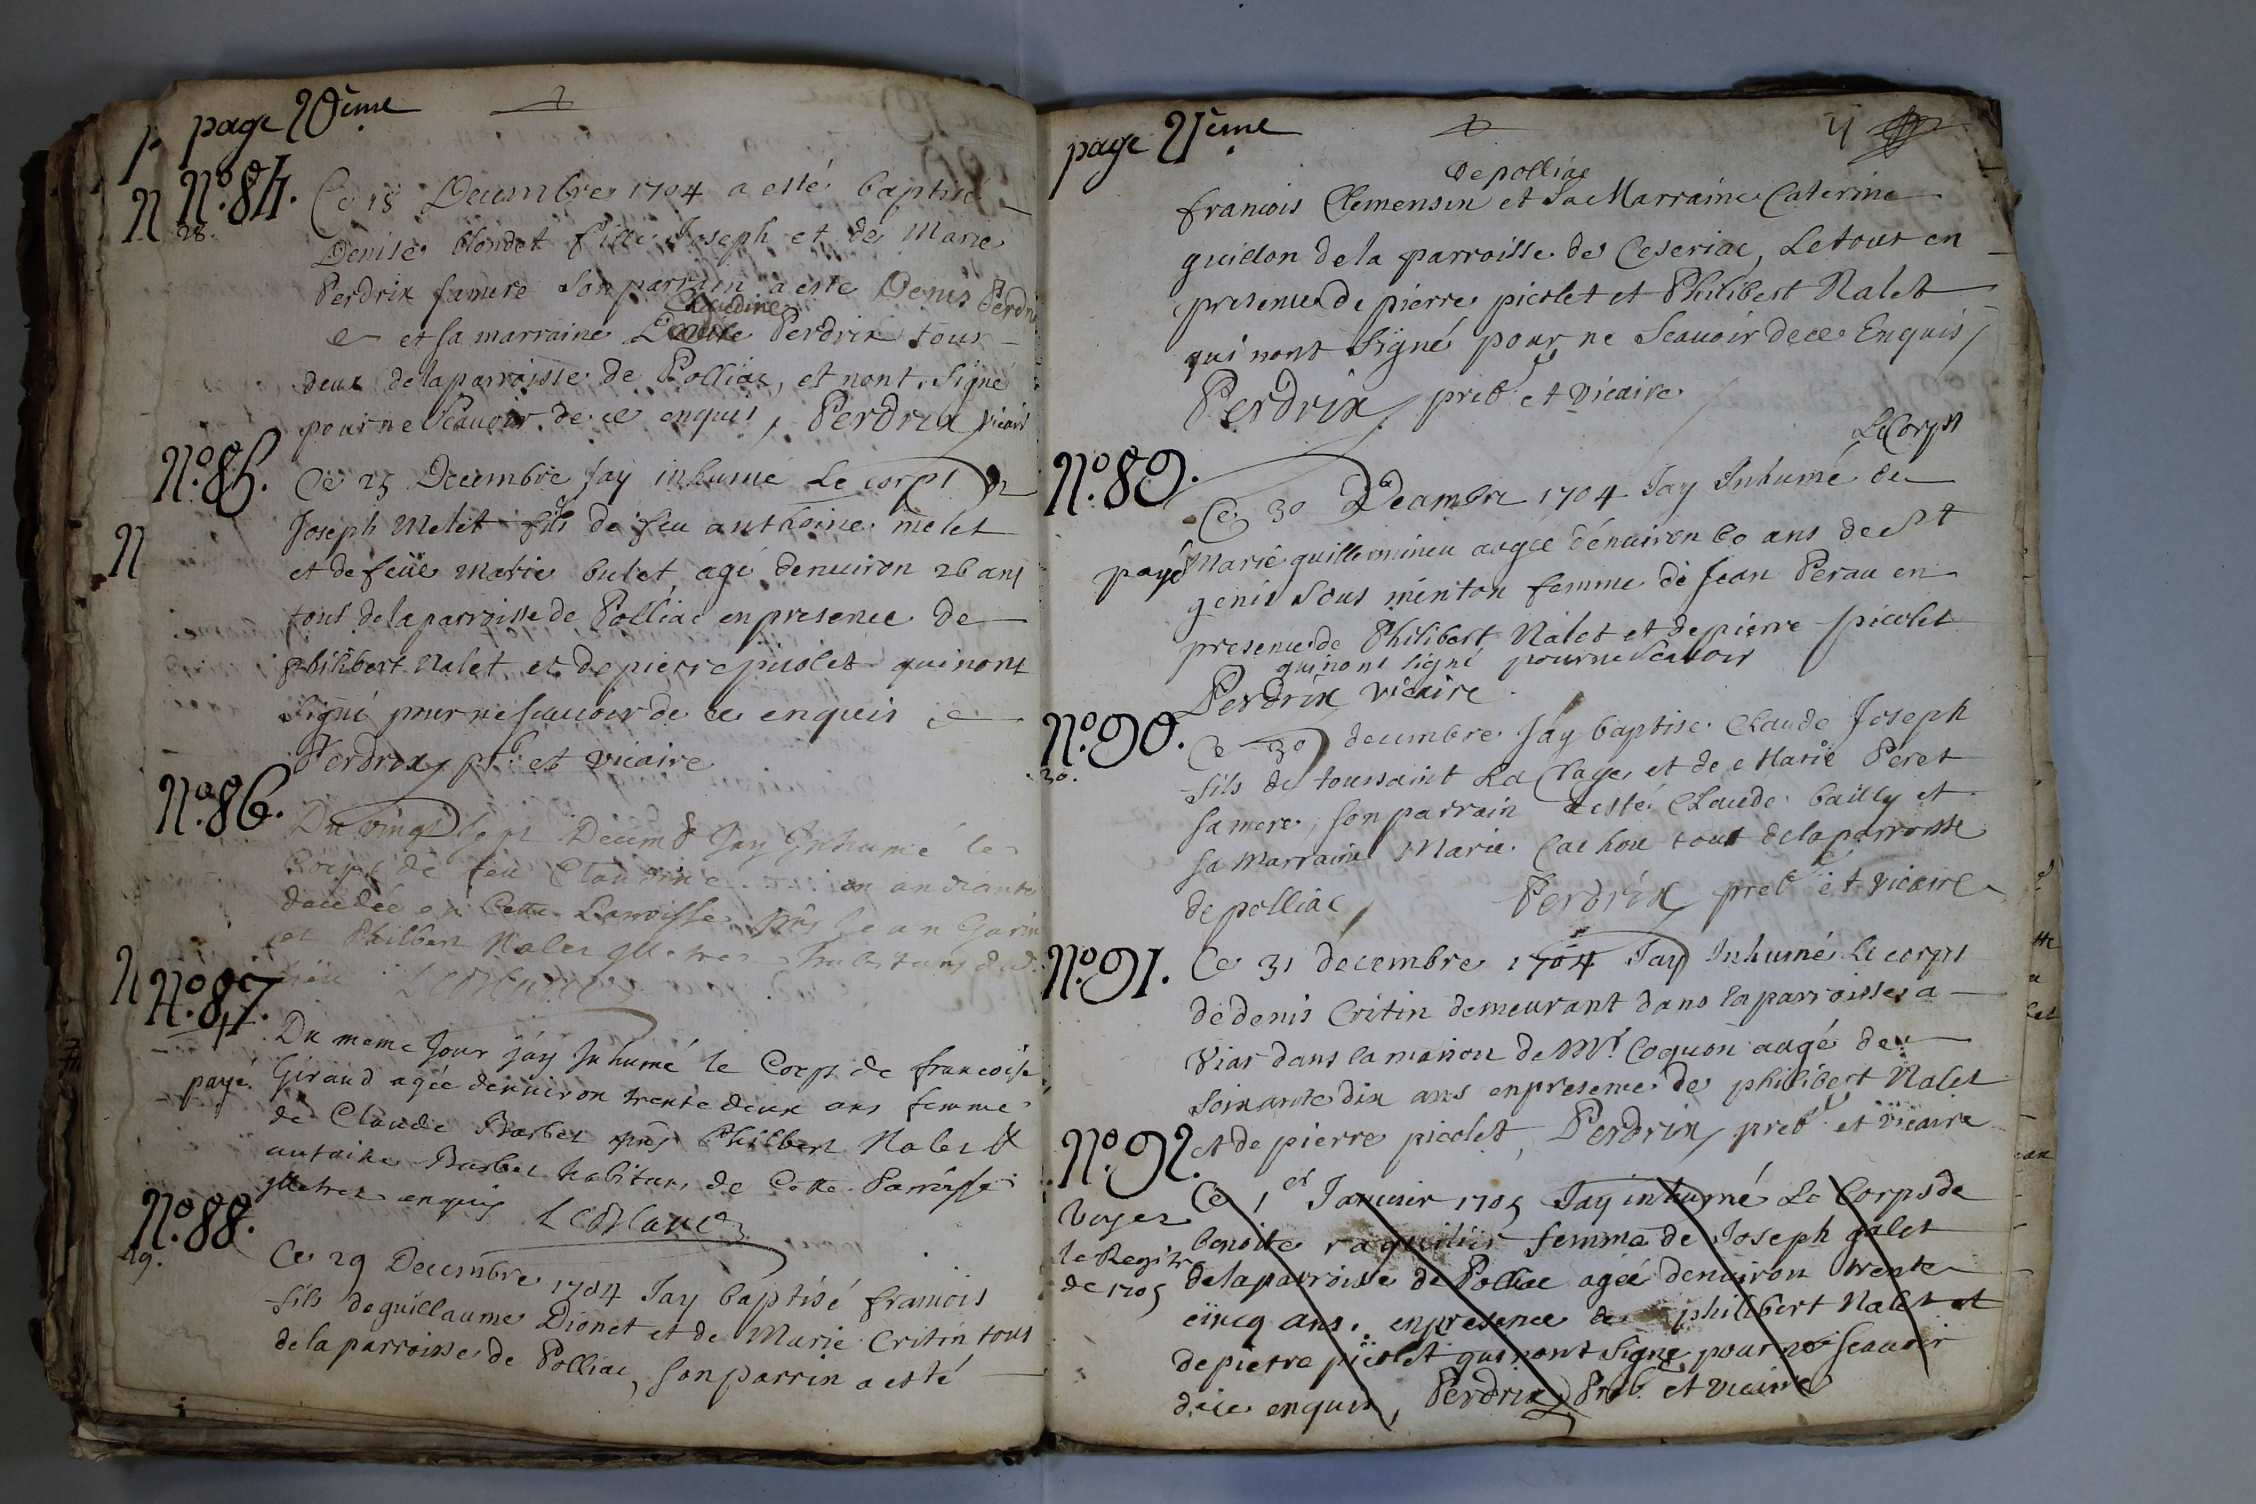 page 20ème
N°. 84.
28.
Ce 18 Decembre 1704 a esté baptisé
Denise blondet fille Joseph et de Marie
Perdrix sa mere son parrain a esté Denis Perdrix
Claudine
et sa marraine Perdrix tous
deux de la parroisse de Polliac, et nont signé
pour ne scavoir de ce enquis, Perdrix vicaire
N°. 85.
Ce 25 Decembre Jay inhumé Le corps de
Joseph Melet fils de feu anthoine melet
et de feüe marie bulet agé denuiron 26 ans
tous de la parroisse de Polliac en presence de
philibert Nalet et de pierre picolet qui nont
signé pour ne scauoir de ce enquis
Perdrix ptre et vicaire
N°. 86.
Du vingt sept Decem Jay Inhumé le
Corps de feu Claudine
decedée en Cette Parroisse pns Jean Garin
et Philbert Nalet Illetrez habitans dud
lieu
N°. 87.
payé
Du meme Jour jáy Inhumé le Corps de francoise
Giraud agée denuiron trente deux ans femme
de Claude Barbet pns Philbert Nalet &
antoine Barbet habitans de Cette Parroisse
Illetrez enquis Leblanc
N°. 88.
29.
Ce 29 Decembre 1704 Jay baptisé francois
fils de guillaume Dionet et de Marie Critin tous
de la parroisse de Polliac, son parrin a esté
page 21ème
de polliac
francois Clemensin et sa Marraine Caterine
guidon de la parroisse de Ceseriac, Le tout en
presence de pierre picolet et Philibert Nalet
qui nont signé pour ne scauoir de ce Enquis
Perdrix preb et vicaire
N°. 89.
payé
Le Corps
Ce 30 Decembre 1704 Jay Inhumé de
Marie guillerminen augée denuiron 60 ans de St
genis sous menton femme de Jean Perau en
presence de Philibert Nalet et de pierre picolet
qui nont signé pour ne scauoir
Perdrix vicaire
N°. 90.
30.
Ce 30 decembre Jay baptise Claude Joseph
fils de toussaint La Claye et de Marie Peret
sa mere, son parrain a esté Claude bailly et
sa Marraine Marie Cachou tous de la parroisse
de polliac, Perdrix preb et vicaire
N°. 91.
Ce 31 decembre 1704 Jay Inhumé Le corps
de denis Critin demeurant dans la parroisse a
Viar dans la maison de Mr. Coquon augé de
soixante dix ans en presence de philibert Nalet
et de pierre picolet, Perdrix preb et vicaire
N°. 92.
Voyez
le Regitre
de 1705
Ce 1er Januier 1705 Jay inhumé Le Corps de
benoite femme de Joseph galet
de la parroisse de Polliac agée denuiron trente
ciincq ans. en presence de philibert Nalet et
de pierre picolet qui nont signé pour ne scauoir
de ce enquis, Perdrix Preb. et vicaire